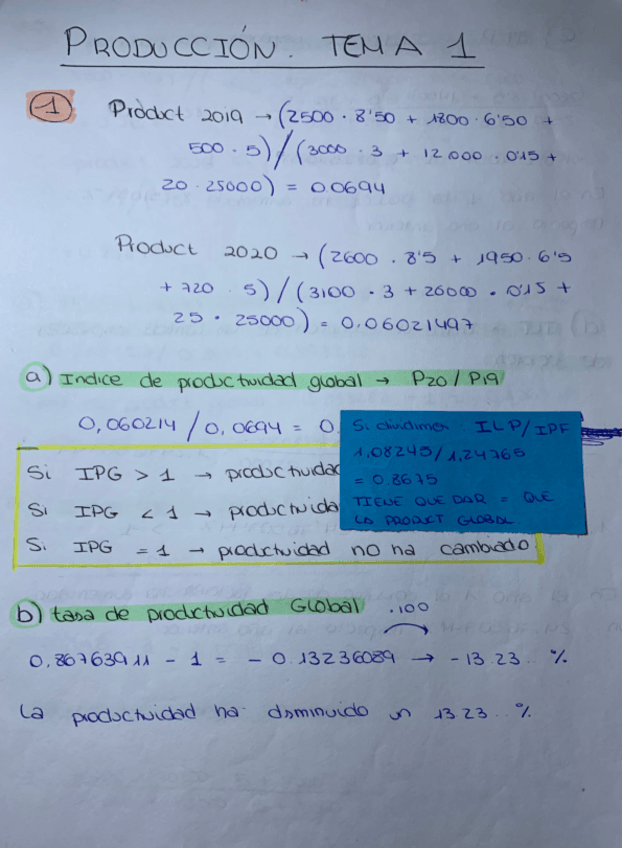 PRODUCCIÓN. TEMA 1
1 Product 2019 → (2500 · 8'50 + 1800 · 6'50 +
500 · 5) / (3000 · 3 + 12000 · 0'15 +
20 · 25000) = 0.0694
Product 2020 → (2600 · 8'5 + 1950 · 6'5
+ 720 · 5) / (3100 · 3 + 26000 · 0'15 +
25 · 25000) = 0.06021497
a) Indice de productividad global → P20 / P19
0,060214 / 0,0694 = 0,
Si dividimos ILP/IPF
1,08245 / 1,24765
= 0.8675
TIENE QUE DAR = QUE
LA PRODUCT GLOBAL
Si IPG > 1 → productividad
Si IPG < 1 → productivida
Si IPG = 1 → productividad no ha cambiado
b) tasa de productividad Global .100
0,86763911 - 1 = - 0.13236089 → - 13.23.. %
La productividad ha disminuido un 13.23..%